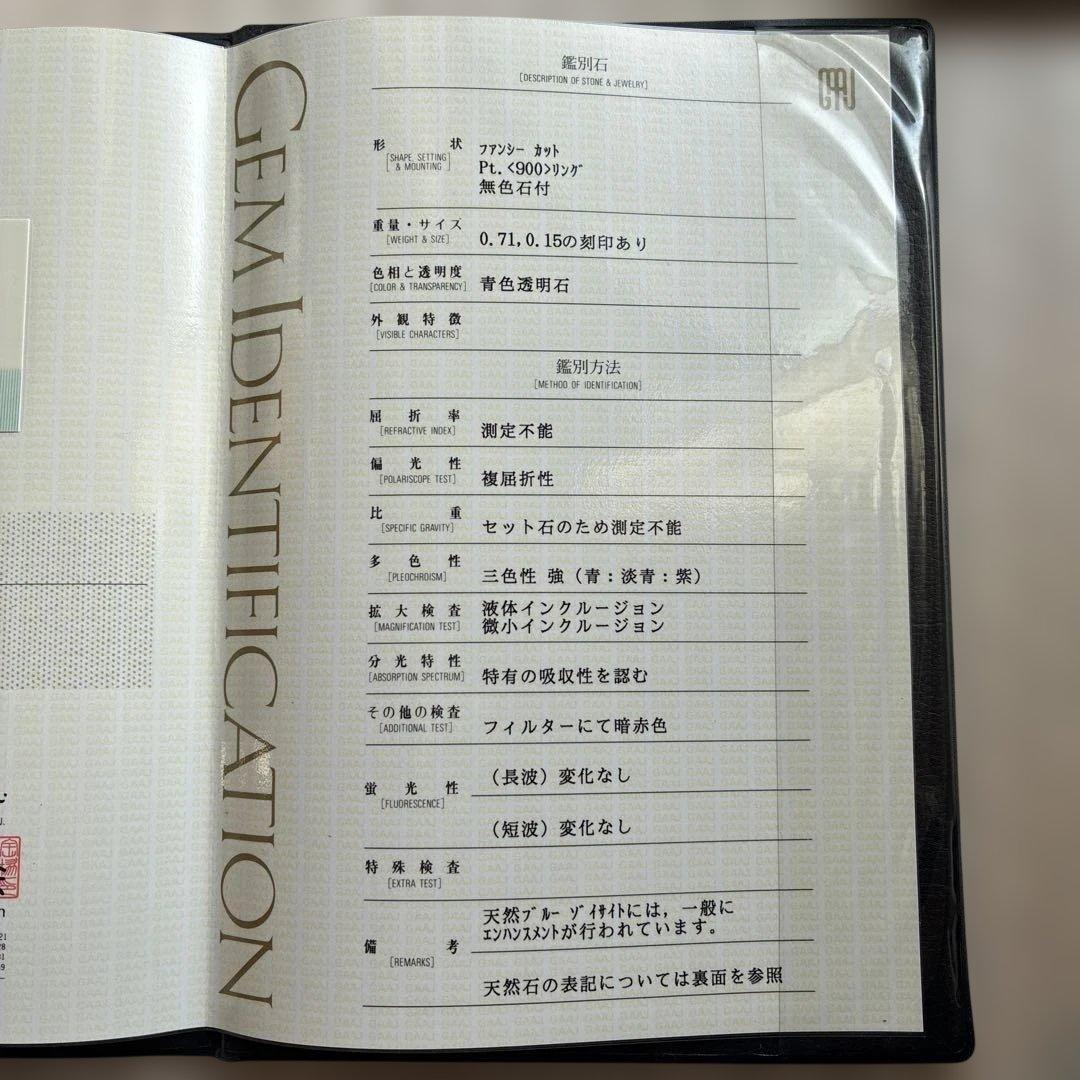 GEM IDENTIFICATION
鑑別石
[DESCRIPTION OF STONE & JEWELRY]
形状
[SHAPE, SETTING & MOUNTING]
ファンシー カット
Pt.<900>リング
無色石付
重量・サイズ
[WEIGHT & SIZE]
0.71,0.15の刻印あり
色相と透明度
[COLOR & TRANSPARENCY]
青色透明石
外観特徴
[VISIBLE CHARACTERS]
鑑別方法
[METHOD OF IDENTIFICATION]
屈折率
[REFRACTIVE INDEX]
測定不能
偏光性
[POLARISCOPE TEST]
複屈折性
比重
[SPECIFIC GRAVITY]
セット石のため測定不能
多色性
[PLEOCHROISM]
三色性 強（青：淡青：紫）
拡大検査
[MAGNIFICATION TEST]
液体インクルージョン
微小インクルージョン
分光特性
[ABSORPTION SPECTRUM]
特有の吸収性を認む
その他の検査
[ADDITIONAL TEST]
フィルターにて暗赤色
蛍光性
[FLUORESCENCE]
（長波）変化なし
（短波）変化なし
特殊検査
[EXTRA TEST]
備考
[REMARKS]
天然ﾌﾞﾙｰ ｿﾞｲｻｲﾄには，一般に
ｴﾝﾊﾝｽﾒﾝﾄが行われています。
天然石の表記については裏面を参照